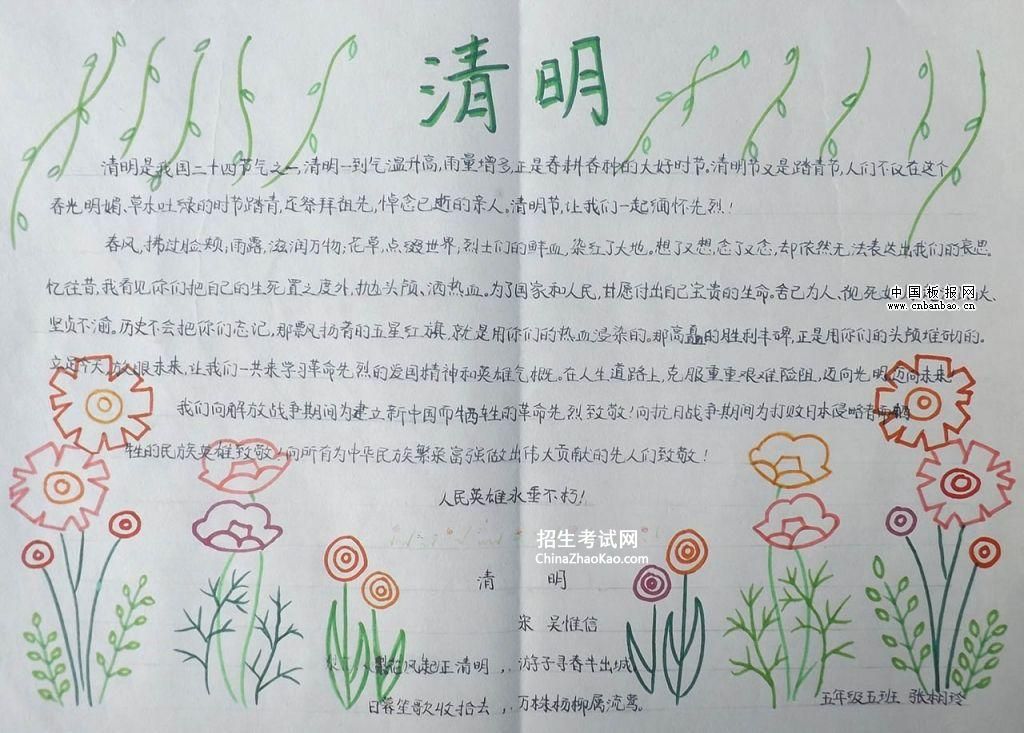 清明
清明是我国二十四节气之一,清明一到气温升高,雨量增多,正是春耕春种的大好时节。清明节又是踏青节,人们不仅在这个
春光明媚、草木吐绿的时节踏青,还祭拜祖先,悼念已逝的亲人。清明节,让我们一起缅怀先烈!
春风,拂过脸颊;雨露,滋润万物;花草,点缀世界;烈士们的鲜血,染红了大地。想了又想,念了又念,却依然无法表达出我们的哀思。
忆往昔,我看见你们把自己的生死置之度外,抛头颅、洒热血。为了国家和人民,甘愿付出自己宝贵的生命。舍己为人、视死
中国板报网
www.cnbanbao.cn
坚贞不渝。历史不会把你们忘记,那飘扬着的五星红旗,就是用你们的热血浸染的。那高矗的胜利丰碑,正是用你们的头颅堆砌的。
立足今天,放眼未来,让我们一共来学习革命先烈的爱国精神和英雄气概。在人生道路上,克服重重艰难险阻,迈向光明,迈向未来
我们向解放战争期间为建立新中国而牺牲的革命先烈致敬!向抗日战争期间为打败日本侵略者而牺
牲的民族英雄致敬!向所有为中华民族繁荣富强做出伟大贡献的先人们致敬!
人民英雄永垂不朽!
招生考试网
ChinaZhaoKao.com
清 明
宋 吴惟信
花风起正清明,游子寻春半出城。
日暮笙歌收拾去,万株杨柳属流莺。
五年级五班 张栩玲